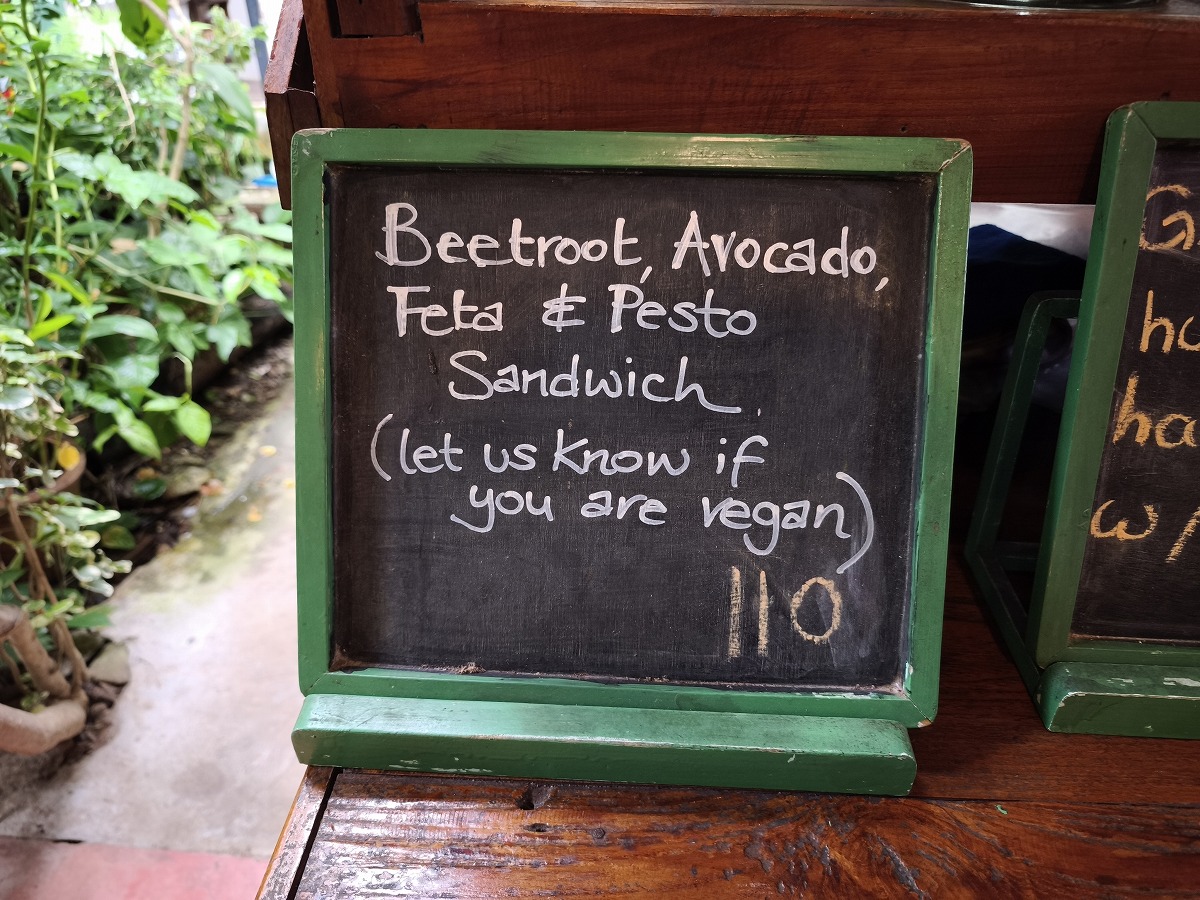 Beetroot, Avocado,
Feta & Pesto
Sandwich.
(let us know if
you are vegan)
110
w/